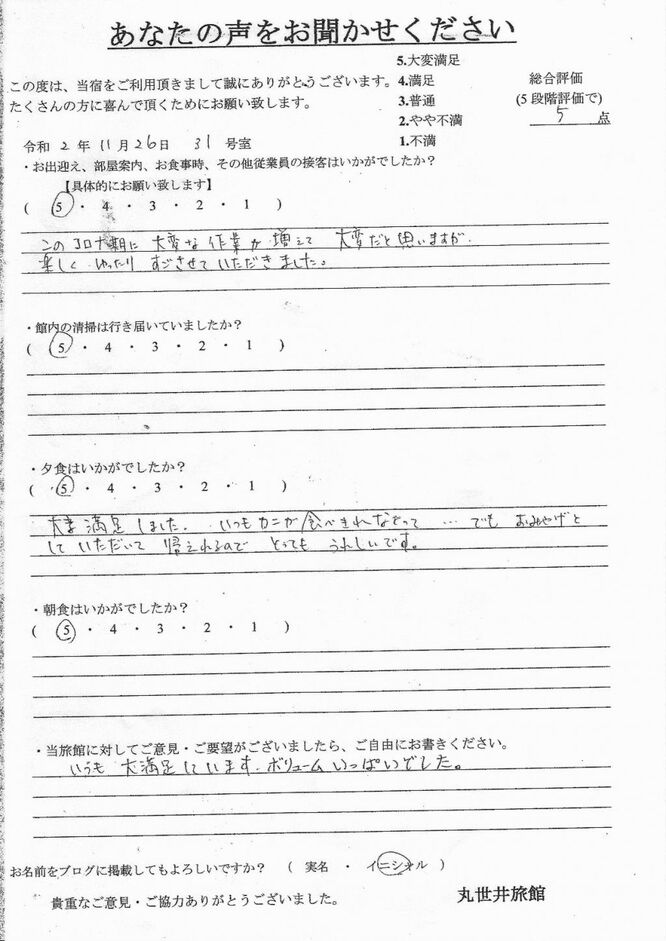 あなたの声をお聞かせください
この度は、当宿をご利用頂きまして誠にありがとうございます。
たくさんの方に喜んで頂くためにお願い致します。
5.大変満足
4.満足
3.普通
2.やや不満
1.不満
総合評価
(5 段階評価で)
5 点
令和 2 年 11 月 26 日 31 号室
・お出迎え、部屋案内、お食事時、その他従業員の接客はいかがでしたか?
【具体的にお願い致します】
( 5 ・ 4 ・ 3 ・ 2 ・ 1 )
このコロナ期に 大変な作業が 増えて 大変だと思いますが、
楽しく ゆったり すごさせていただきました。
・館内の清掃は行き届いていましたか?
( 5 ・ 4 ・ 3 ・ 2 ・ 1 )
・夕食はいかがでしたか?
( 5 ・ 4 ・ 3 ・ 2 ・ 1 )
大変 満足しました。いつもカニが食べきれなくって … でも おみやげと
していただいて 帰えれるので とっても うれしいです。
・朝食はいかがでしたか?
( 5 ・ 4 ・ 3 ・ 2 ・ 1 )
・当旅館に対してご意見・ご要望がございましたら、ご自由にお書きください。
いつも 大満足しています。ボリュームいっぱいでした。
お名前をブログに掲載してもよろしいですか? ( 実名 ・ イニシャル )
貴重なご意見・ご協力ありがとうございました。
丸世井旅館